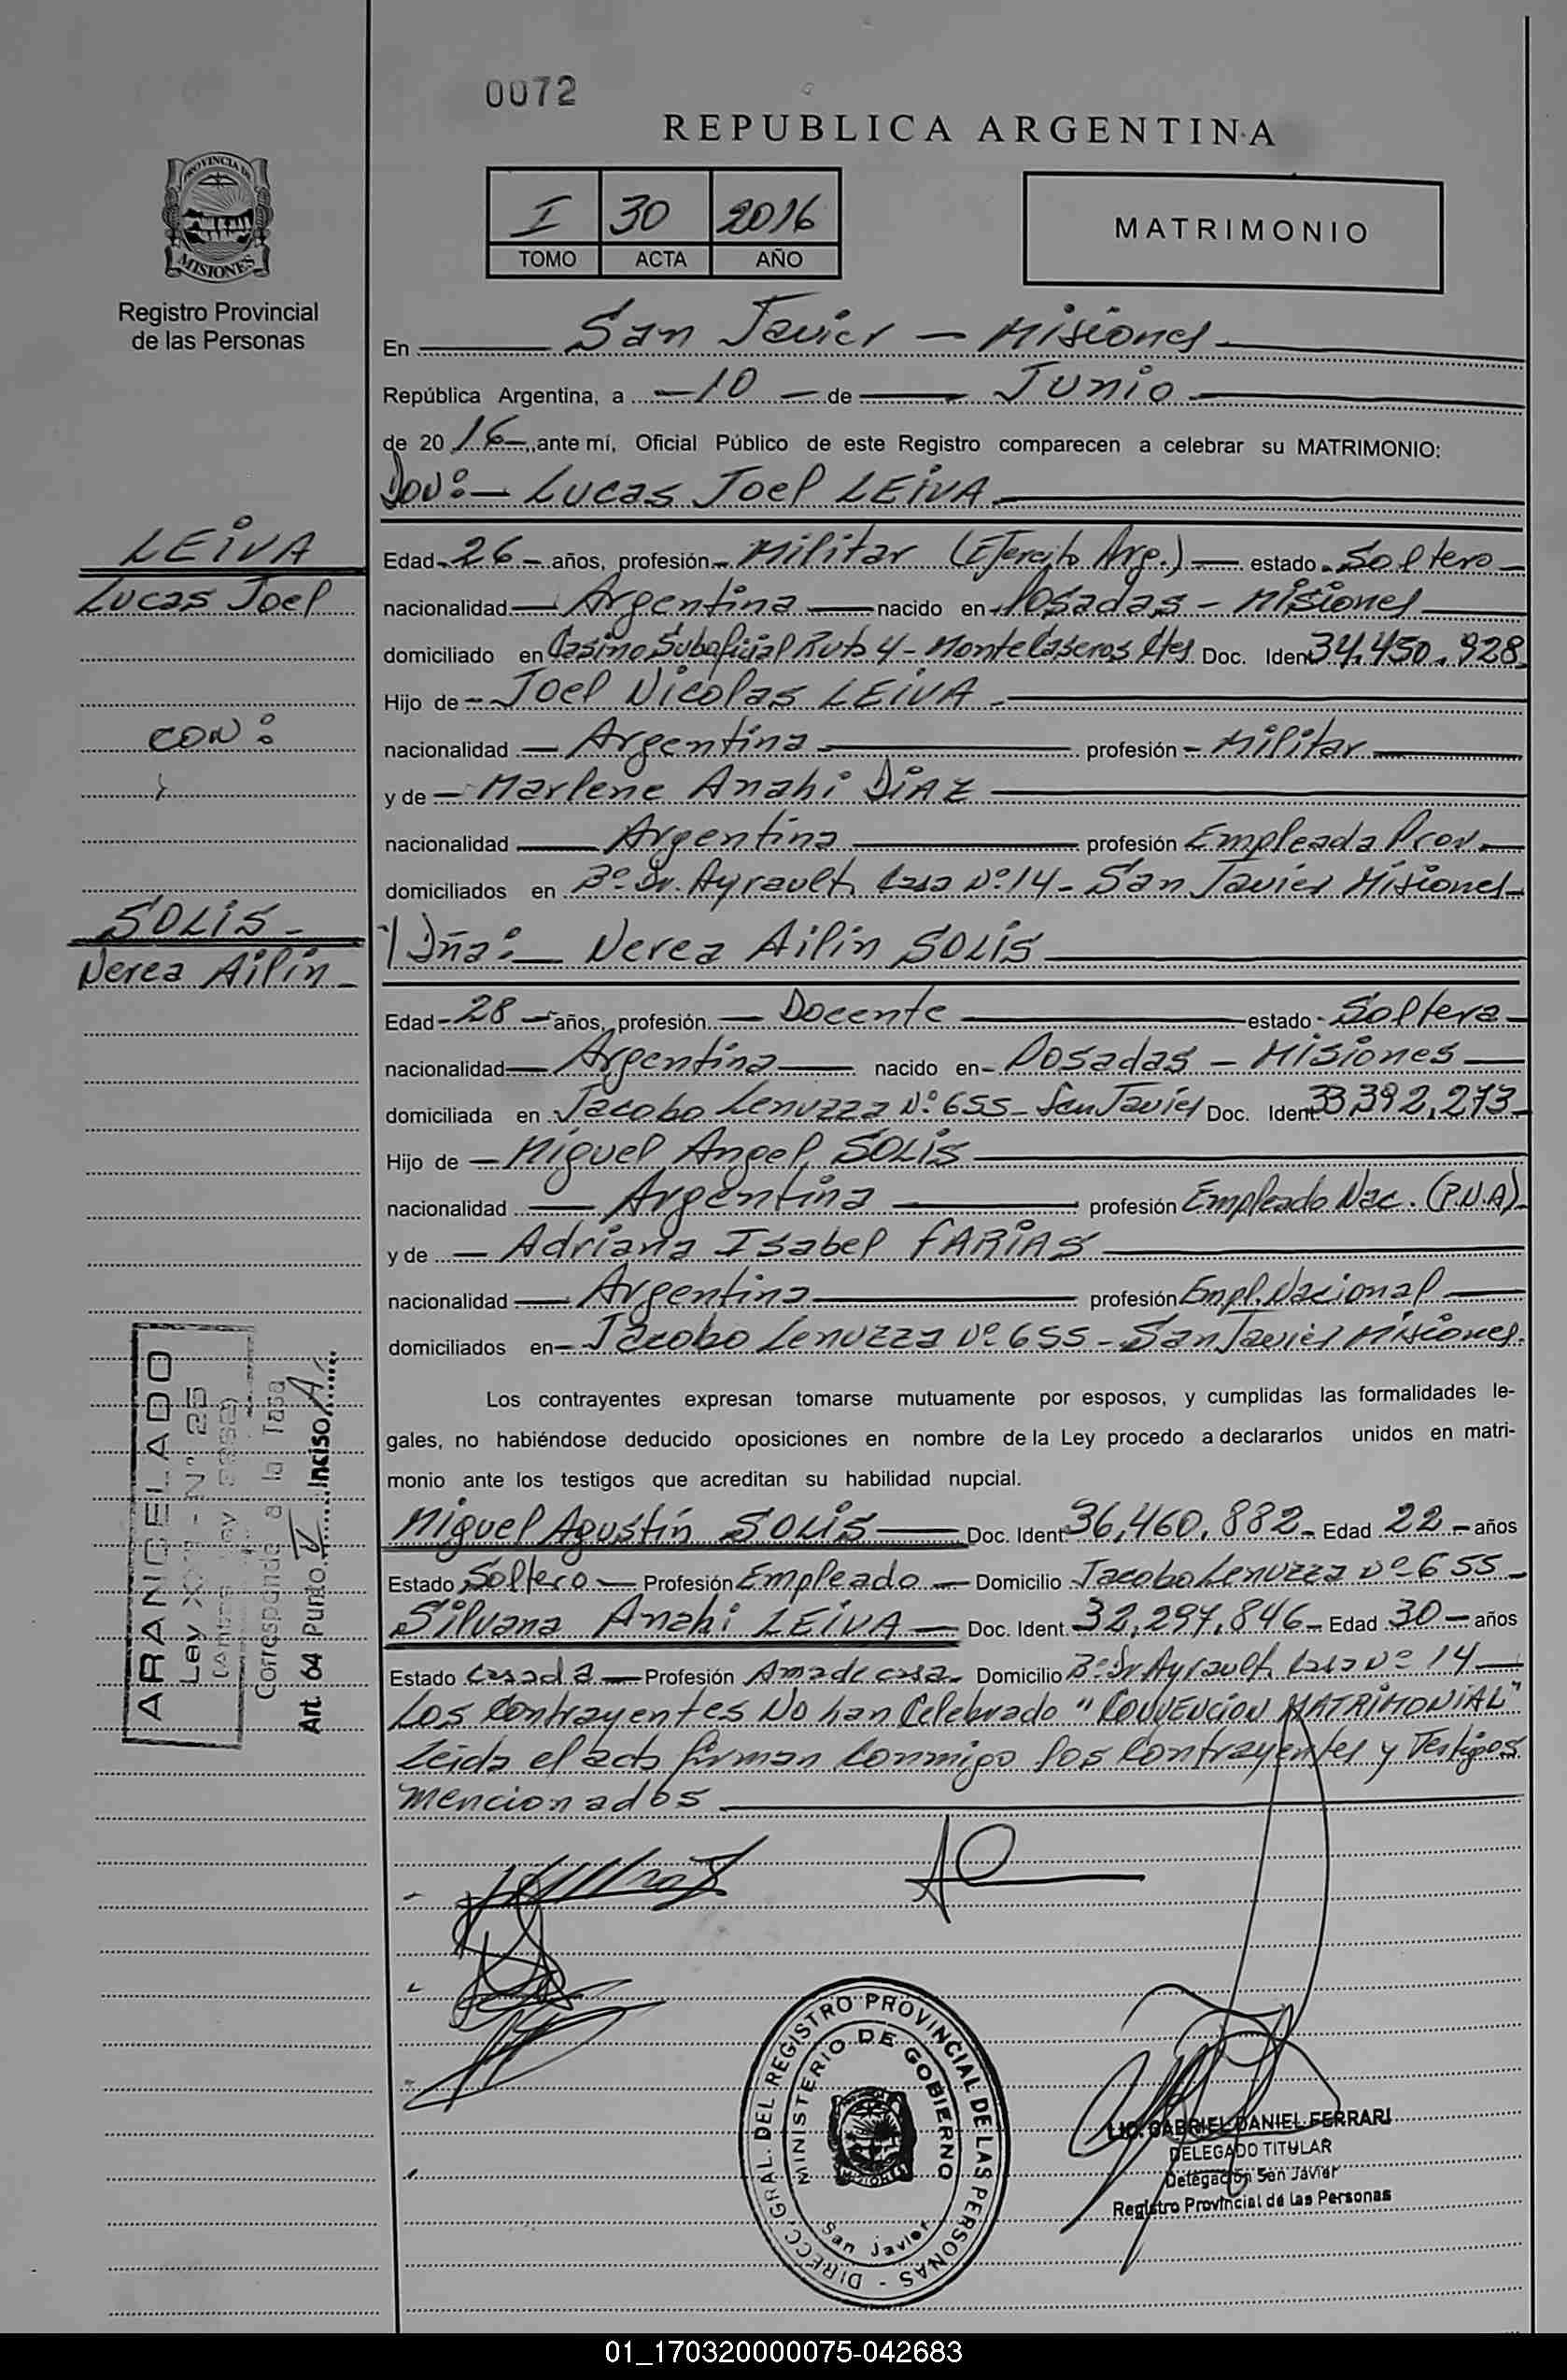 0072
REPUBLICA ARGENTINA
I 30 2016
TOMO ACTA AÑO
MATRIMONIO
PROVINCIA DE
MISIONES
Registro Provincial
de las Personas
En San Javier - Misiones
República Argentina, a -10- de Junio
de 2016-, ante mí, Oficial Público de este Registro comparecen a celebrar su MATRIMONIO:
Don:- Lucas Joel LEIVA
LEIVA
Lucas Joel
CON:
SOLIS-
Nerea Ailin-
Edad-26- años, profesión- Militar (Ejercito Arg.)- estado-Soltero-
nacionalidad- Argentina- nacido en-Posadas - Misiones
domiciliado en Casino Suboficial Ruta 4- Monte Caseros Ctes Doc. Ident 34.450.928
Hijo de - Joel Nicolas LEIVA-
nacionalidad - Argentina- profesión - Militar
y de - Marlene Anahi DIAZ
nacionalidad Argentina profesión Empleada Prov.
domiciliados en Bº Dr. Ayrault Casa Nº 14- San Javier Misiones-
Y Dña:- Nerea Ailin SOLIS
Edad-28- años, profesión- Docente estado- Soltera
nacionalidad- Argentina- nacido en- Posadas - Misiones
domiciliada en Jacobo Lenuzza Nº 655- San Javier Doc. Ident 33.392.273-
Hijo de - Miguel Angel SOLIS
nacionalidad - Argentina profesión Empleado Nac. (P.N.A)
y de - Adriana Isabel FARIAS
nacionalidad - Argentina profesión Empl. Nacional
domiciliados en- Jacobo Lenuzza Nº 655- San Javier Misiones.
Los contrayentes expresan tomarse mutuamente por esposos, y cumplidas las formalidades le-
gales, no habiéndose deducido oposiciones en nombre de la Ley procedo a declararlos unidos en matri-
monio ante los testigos que acreditan su habilidad nupcial.
Miguel Agustín SOLIS- Doc. Ident 36.460.882- Edad 22- años
Estado Soltero- Profesión Empleado- Domicilio Jacobo Lenuzza Nº 655-
Silvana Anahi LEIVA- Doc. Ident. 32.297.846- Edad 30- años
Estado Casada- Profesión Ama de casa- Domicilio Bº Dr. Ayrault Casa Nº 14-
Los Contrayentes No han Celebrado "CONVENCION MATRIMONIAL"
Leida el acta firman conmigo los contrayentes y Testigos
mencionados
ARANCELADO
Ley - Nº 25
Corresponde a la Tasa
Art. 64 Punto IV Inciso A
DIRECC. GRAL. DEL REGISTRO PROVINCIAL DE LAS PERSONAS -
MINISTERIO DE GOBIERNO
San Javier
LIC. GABRIEL DANIEL FERRARI
DELEGADO TITULAR
Delegación San Javier
Registro Provincial de las Personas
01_170320000075-042683